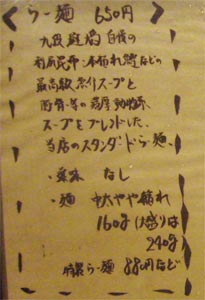 らー麺 650円
九段 斑鳩 自慢の
利尻昆布・本枯れ節などの
最高級 魚介スープと
豚骨・等の濃厚動物系
スープをブレンドした、
当店のスタンダードらー麺、
・薬味 なし
・麺 中太やや縮れ
160g (大盛りは
240g
特製らー麺 880円など